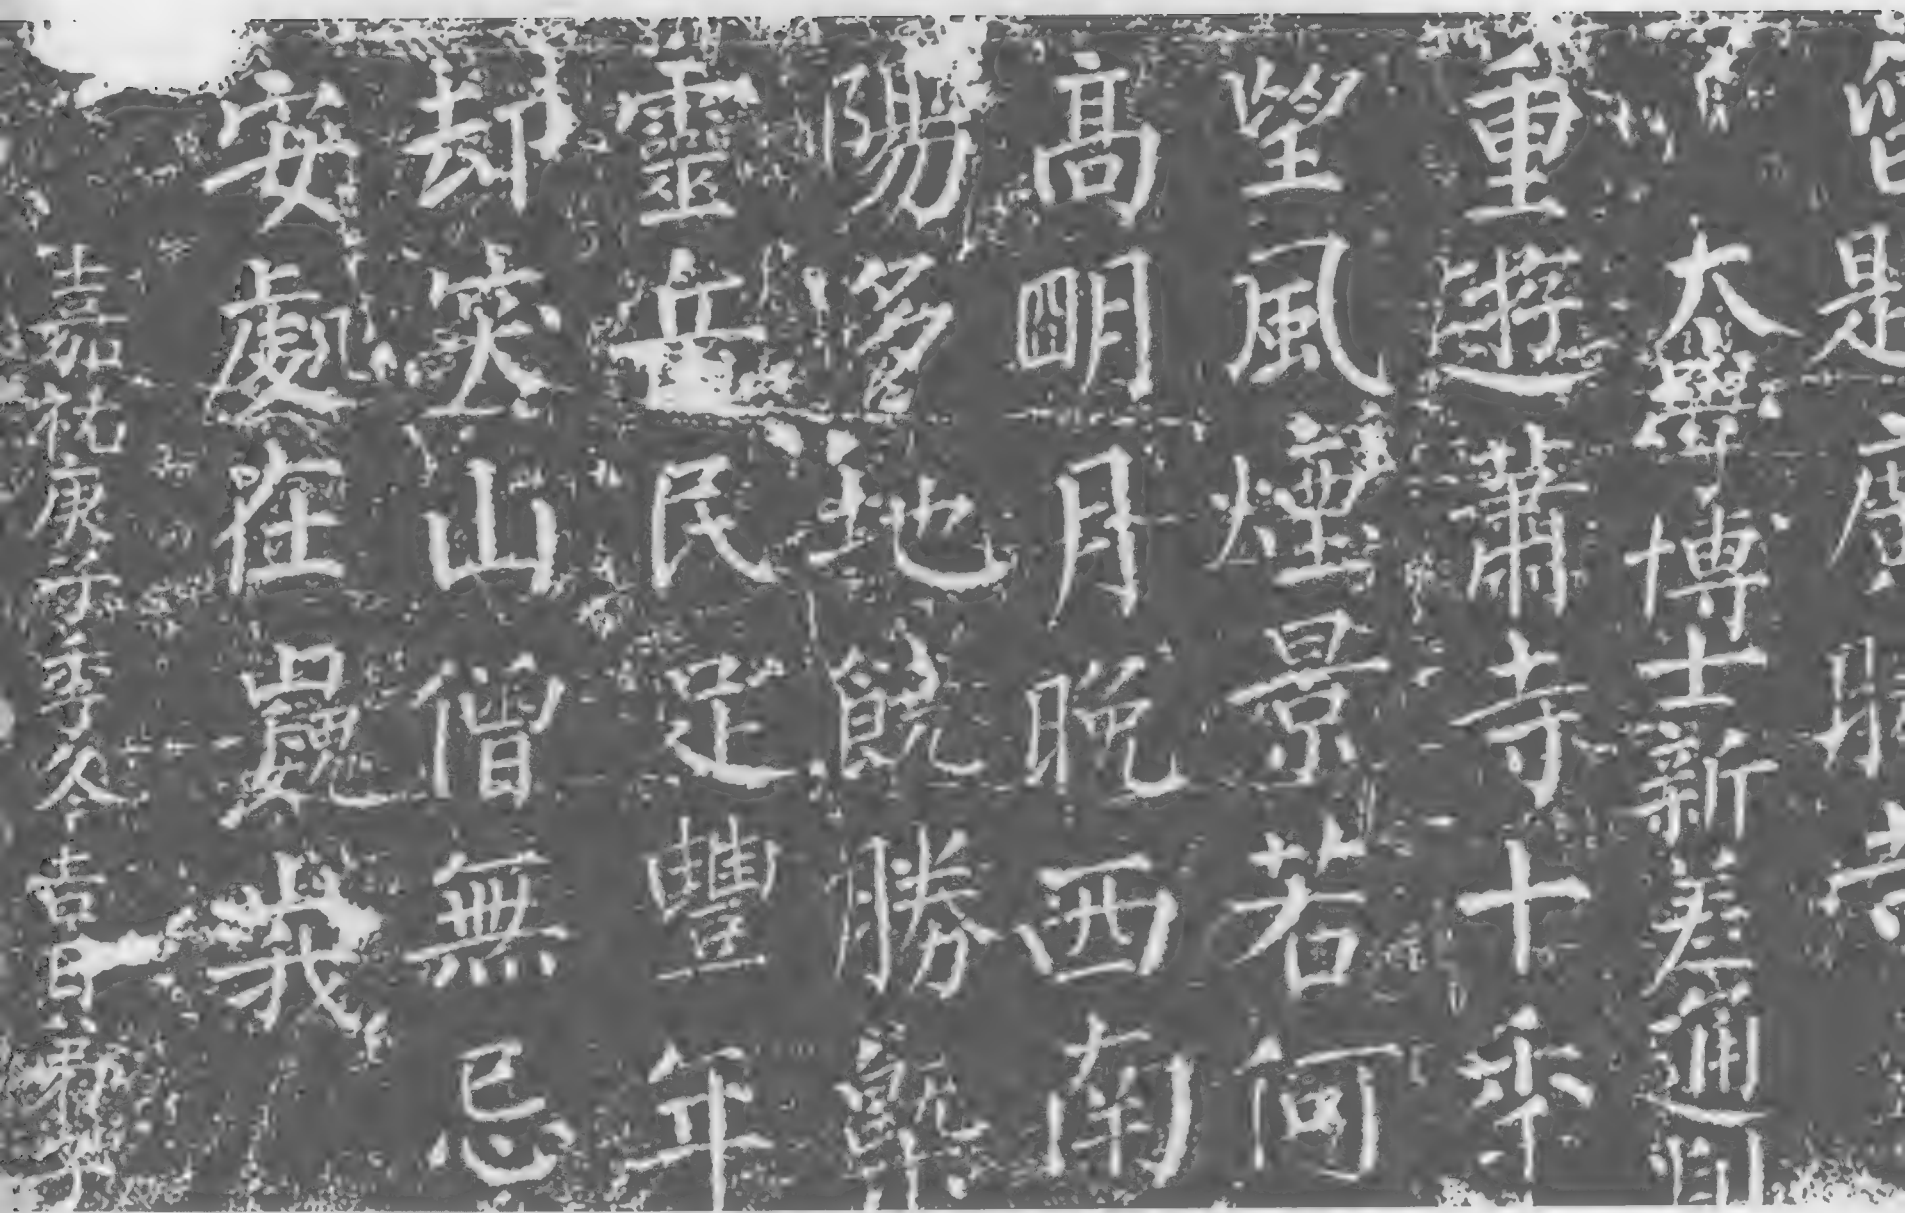 是
大學博士新差通
重遊蕭寺十秊
望風煙景若何
高明月晚西南
陽多地饒勝槩
靈岳民足豐年
却笑山僧無忌
安處在巍峩
嘉祐庚子季冬吉日